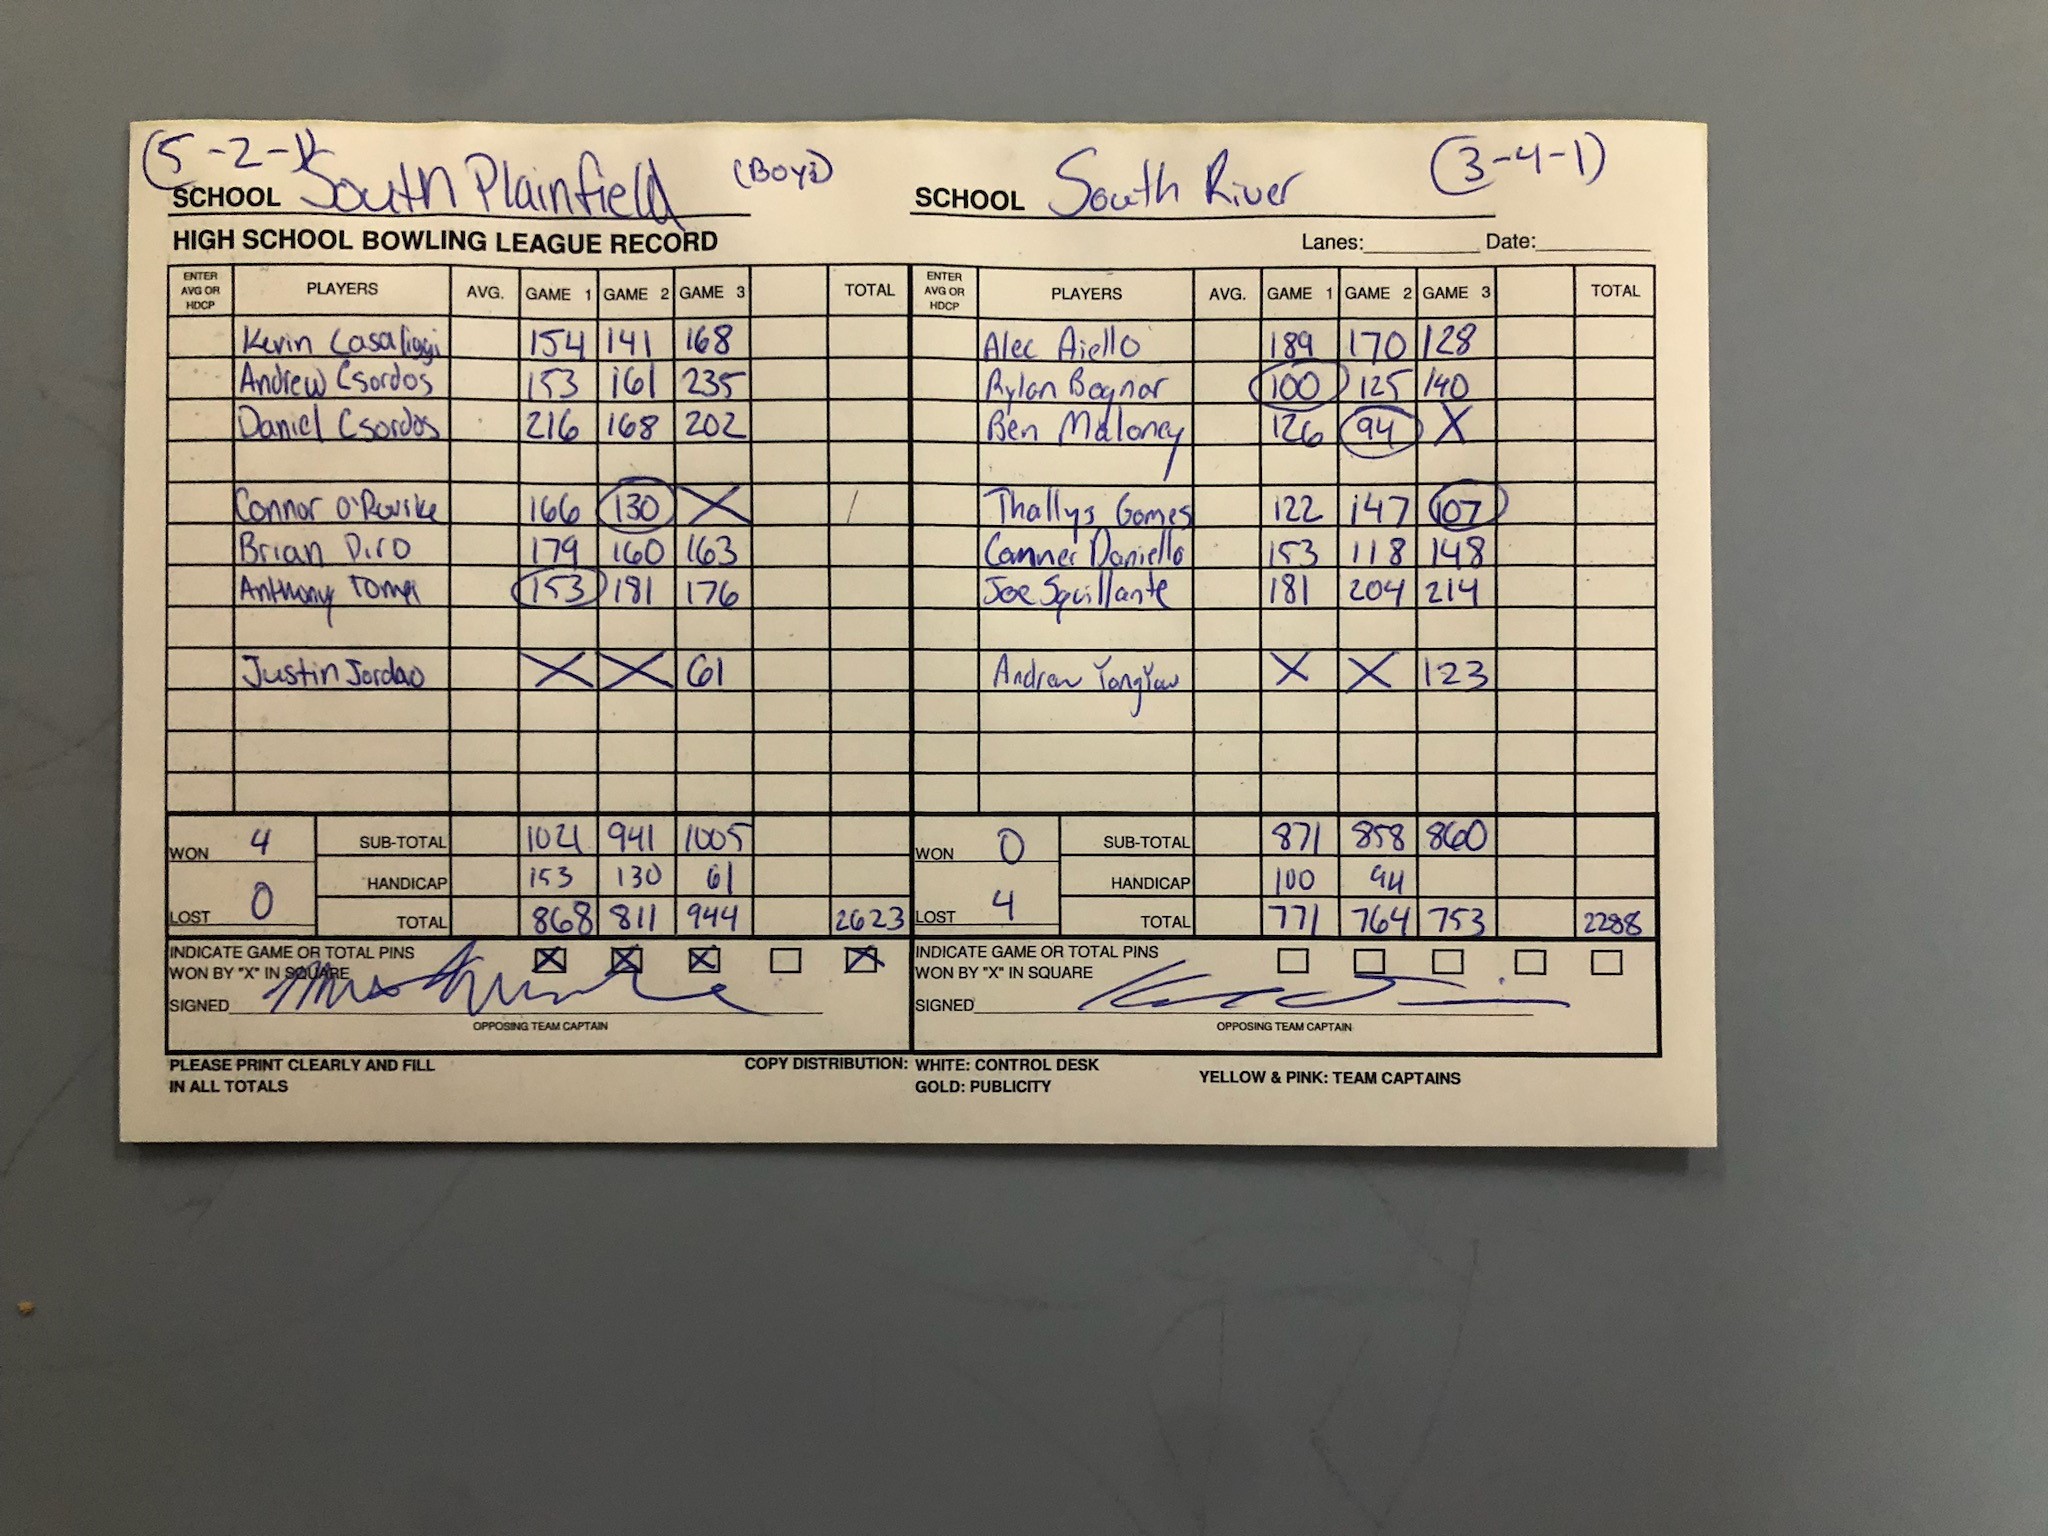 (5-2-1) (3-4-1)
SCHOOL South Plainfield (BOYS) SCHOOL South River
HIGH SCHOOL BOWLING LEAGUE RECORD Lanes: Date:
ENTER AVG OR HDCP PLAYERS AVG. GAME 1 GAME 2 GAME 3 TOTAL ENTER AVG OR HDCP PLAYERS AVG. GAME 1 GAME 2 GAME 3 TOTAL
Kevin Casaliggi 154 141 168 Alec Aiello 189 170 128
Andrew Csordos 153 161 235 Rylan Bognar 100 125 140
Daniel Csordos 216 168 202 Ben Maloney 126 94 X
Connor O'Rourke 166 130 X Thallys Gomes 122 147 107
Brian Diro 179 160 163 Conner Daniello 153 118 148
Anthony 153 181 176 Joe Squillante 181 204 214
Justin Jordao X X 61 Andrew X X 123
WON 4 SUB-TOTAL 1021 941 1005 WON 0 SUB-TOTAL 871 858 860
HANDICAP 153 130 61 HANDICAP 100 94
LOST 0 TOTAL 868 811 944 2623 LOST 4 TOTAL 771 764 753 2288
INDICATE GAME OR TOTAL PINS X X X X INDICATE GAME OR TOTAL PINS
WON BY "X" IN SQUARE WON BY "X" IN SQUARE
SIGNED SIGNED
OPPOSING TEAM CAPTAIN OPPOSING TEAM CAPTAIN
PLEASE PRINT CLEARLY AND FILL COPY DISTRIBUTION: WHITE: CONTROL DESK YELLOW & PINK: TEAM CAPTAINS
IN ALL TOTALS GOLD: PUBLICITY